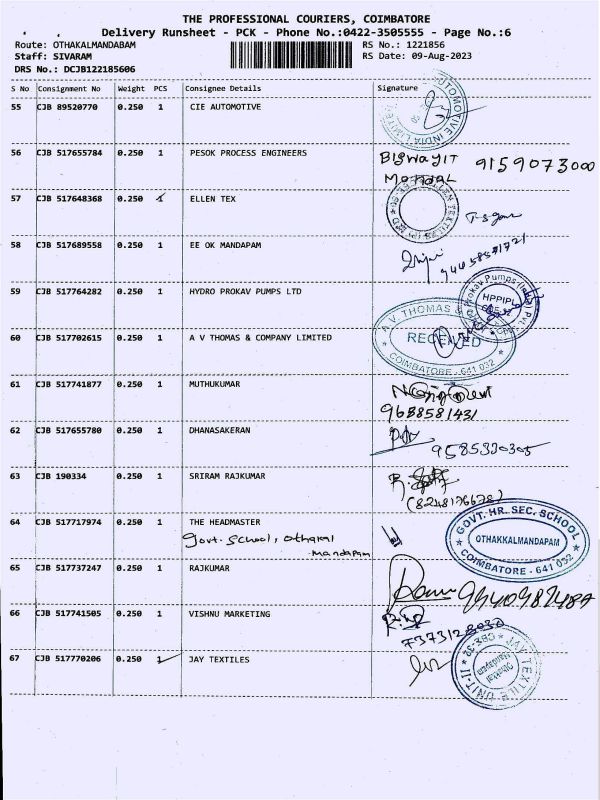 THE PROFESSIONAL COURIERS, COIMBATORE
Delivery Runsheet - PCK - Phone No.:0422-3505555 - Page No.:6
Route: OTHAKALMANDABAM RS No.: 1221856
Staff: SIVARAM RS Date: 09-Aug-2023
DRS No.: DCJB122185606
S No Consignment No Weight PCS Consignee Details Signature
55 CJB 89520770 0.250 1 CIE AUTOMOTIVE
AUTOMOTIVE INDIA LIMITED
56 CJB 517655784 0.250 1 PESOK PROCESS ENGINEERS
BISWAJIT 9159073000
MONDAL
57 CJB 517648368 0.250 1 ELLEN TEX
58 CJB 517689558 0.250 1 EE OK MANDAPAM
59 CJB 517764282 0.250 1 HYDRO PROKAV PUMPS LTD
Prokav Pumps (India) Pvt.
HPPIPL
60 CJB 517702615 0.250 1 A V THOMAS & COMPANY LIMITED
A V THOMAS &
RECEIVED
COIMBATORE - 641 032
61 CJB 517741877 0.250 1 MUTHUKUMAR
9688581431
62 CJB 517655780 0.250 1 DHANASAKERAN
9585320305
63 CJB 190334 0.250 1 SRIRAM RAJKUMAR
(8248176678)
64 CJB 517717974 0.250 1 THE HEADMASTER
Govt. School, Othakal
Mandapam
GOVT. HR. SEC. SCHOOL
OTHAKKALMANDAPAM
COIMBATORE - 641 032
65 CJB 517737247 0.250 1 RAJKUMAR
66 CJB 517741505 0.250 1 VISHNU MARKETING
67 CJB 517770206 0.250 1 JAY TEXTILES
JAY TEXTILE UNIT-II
CBE-32
Othakal
Mandapam